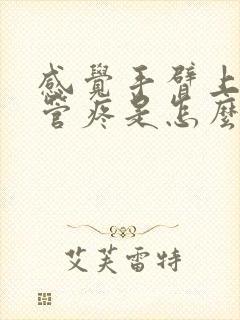 感覺手臂上
管疼是怎麼
艾芙雷特